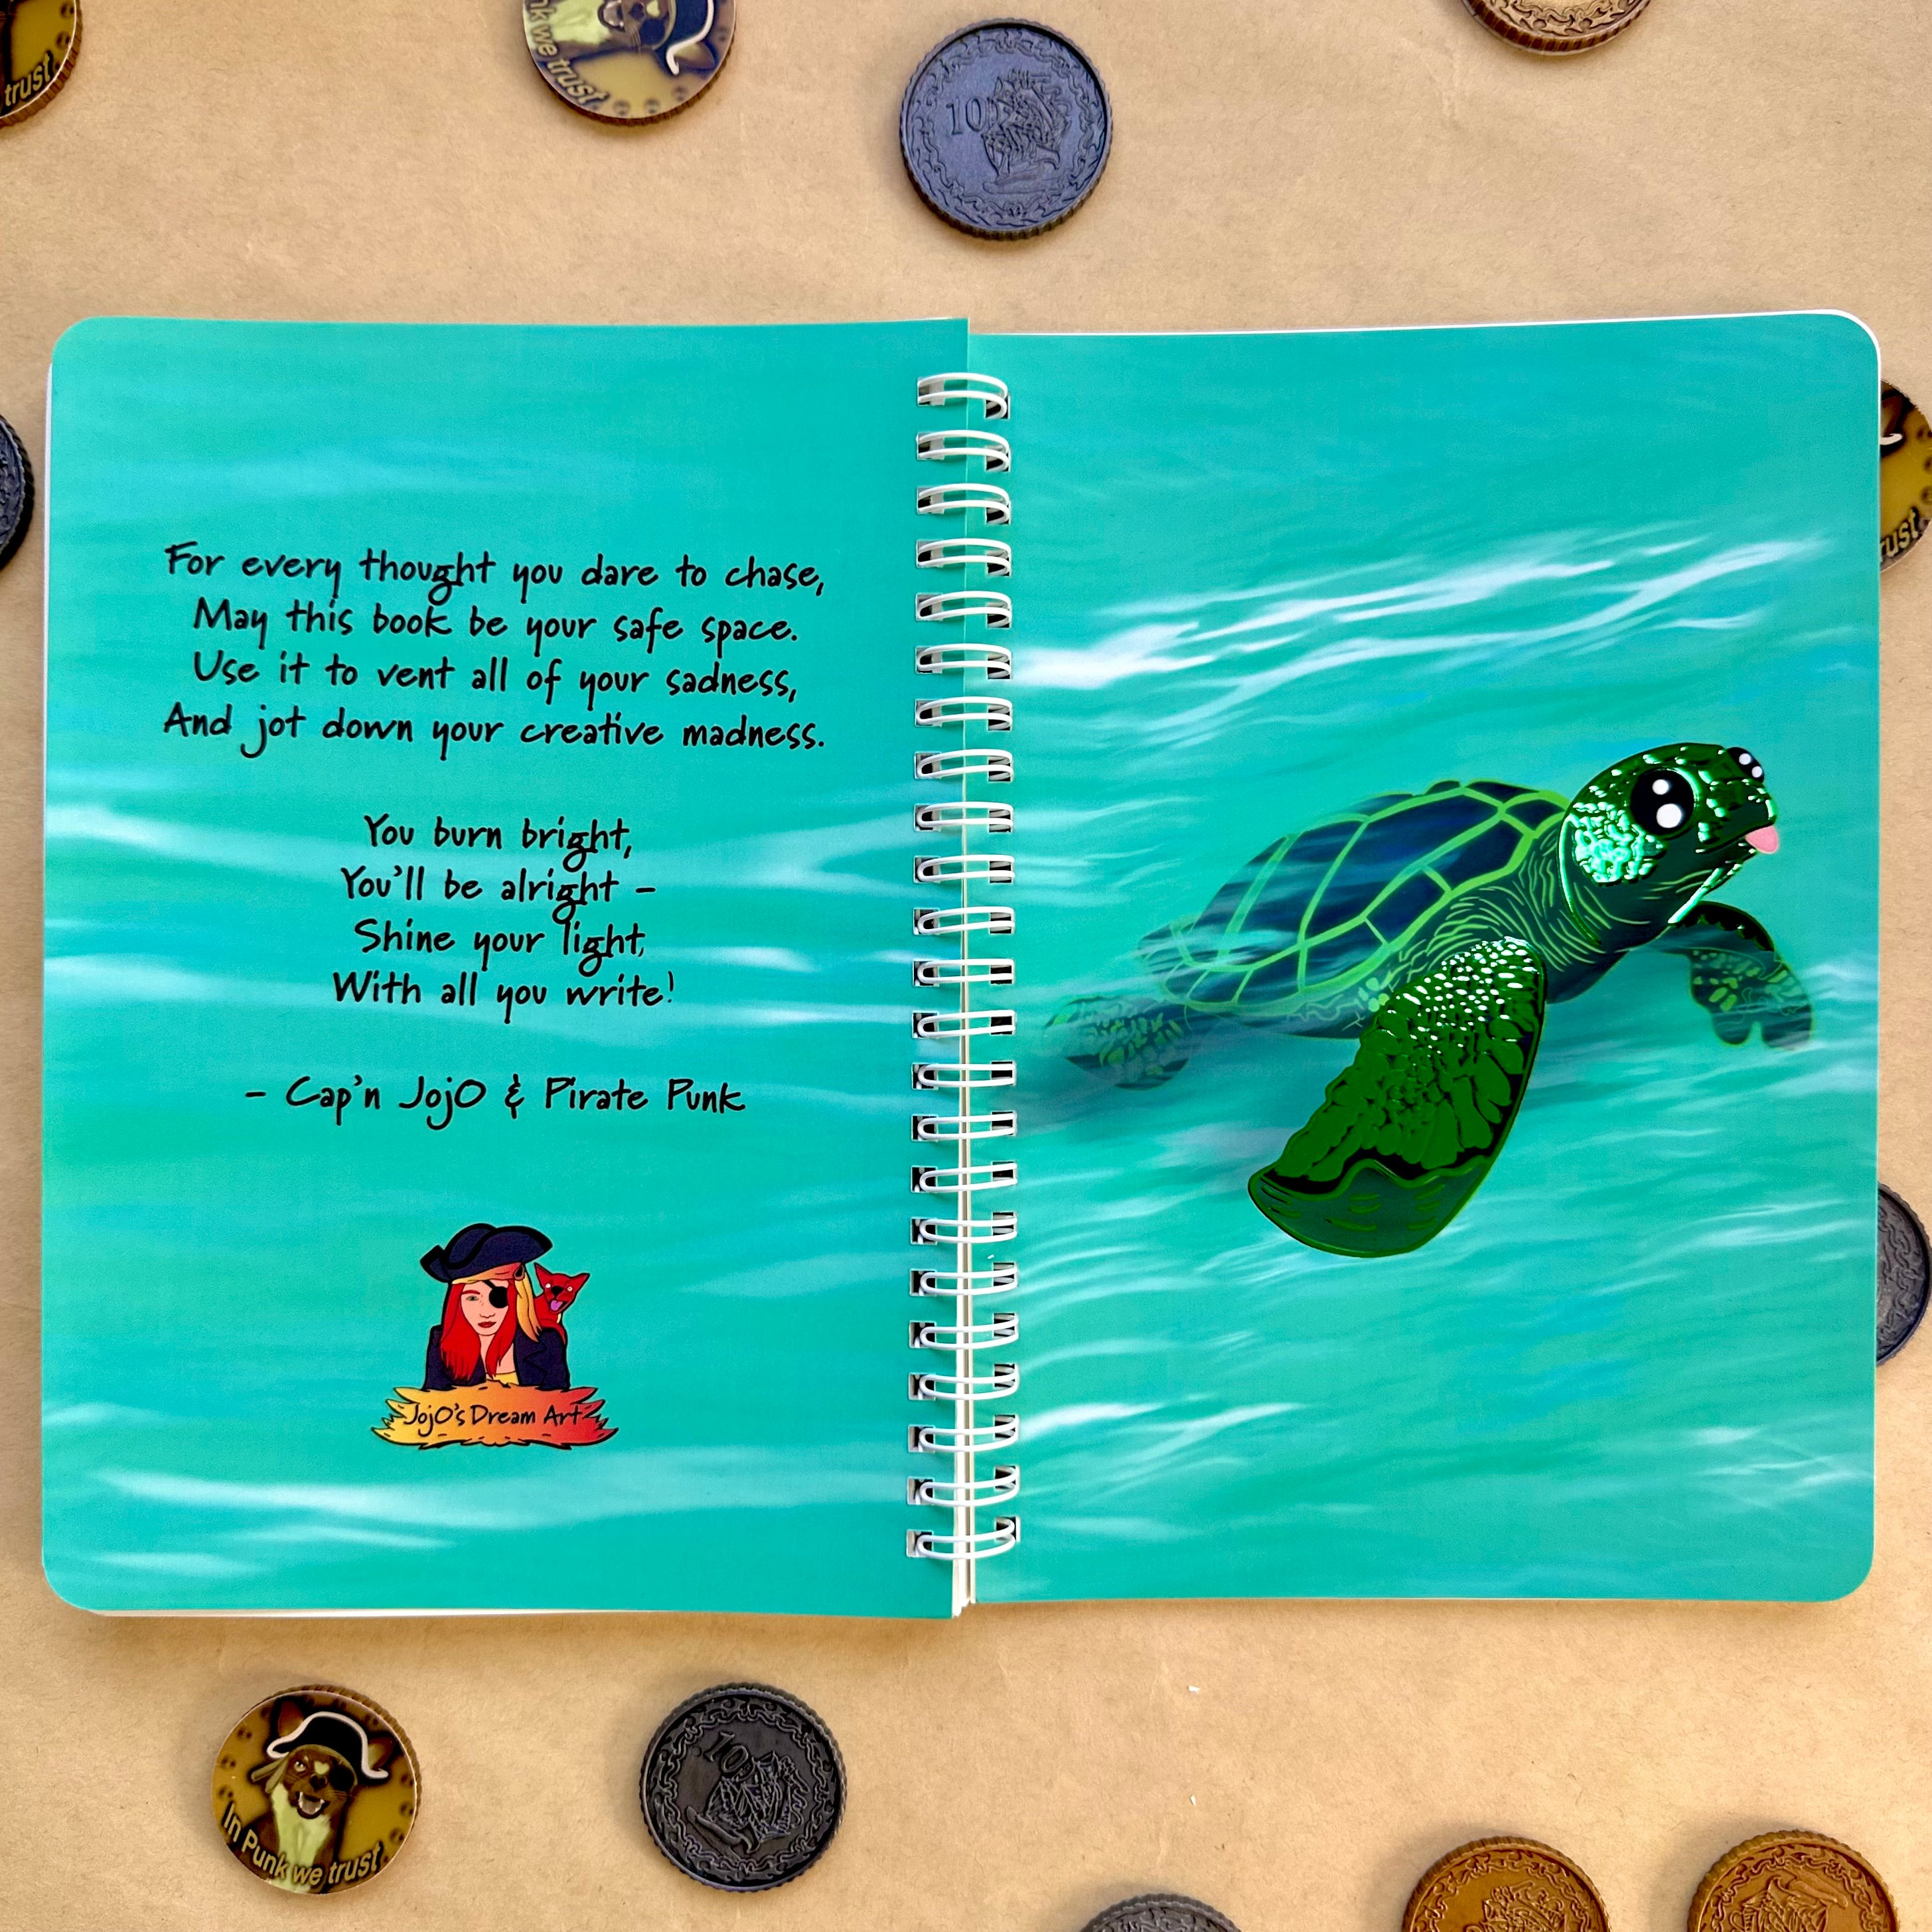 trust
nk we trust
10
For every thought you dare to chase,
May this book be your safe space.
Use it to vent all of your sadness,
And jot down your creative madness.
You burn bright,
You'll be alright –
Shine your light,
With all you write!
– Cap'n JojO & Pirate Punk
JojO's Dream Art
rust
In Punk we trust
10